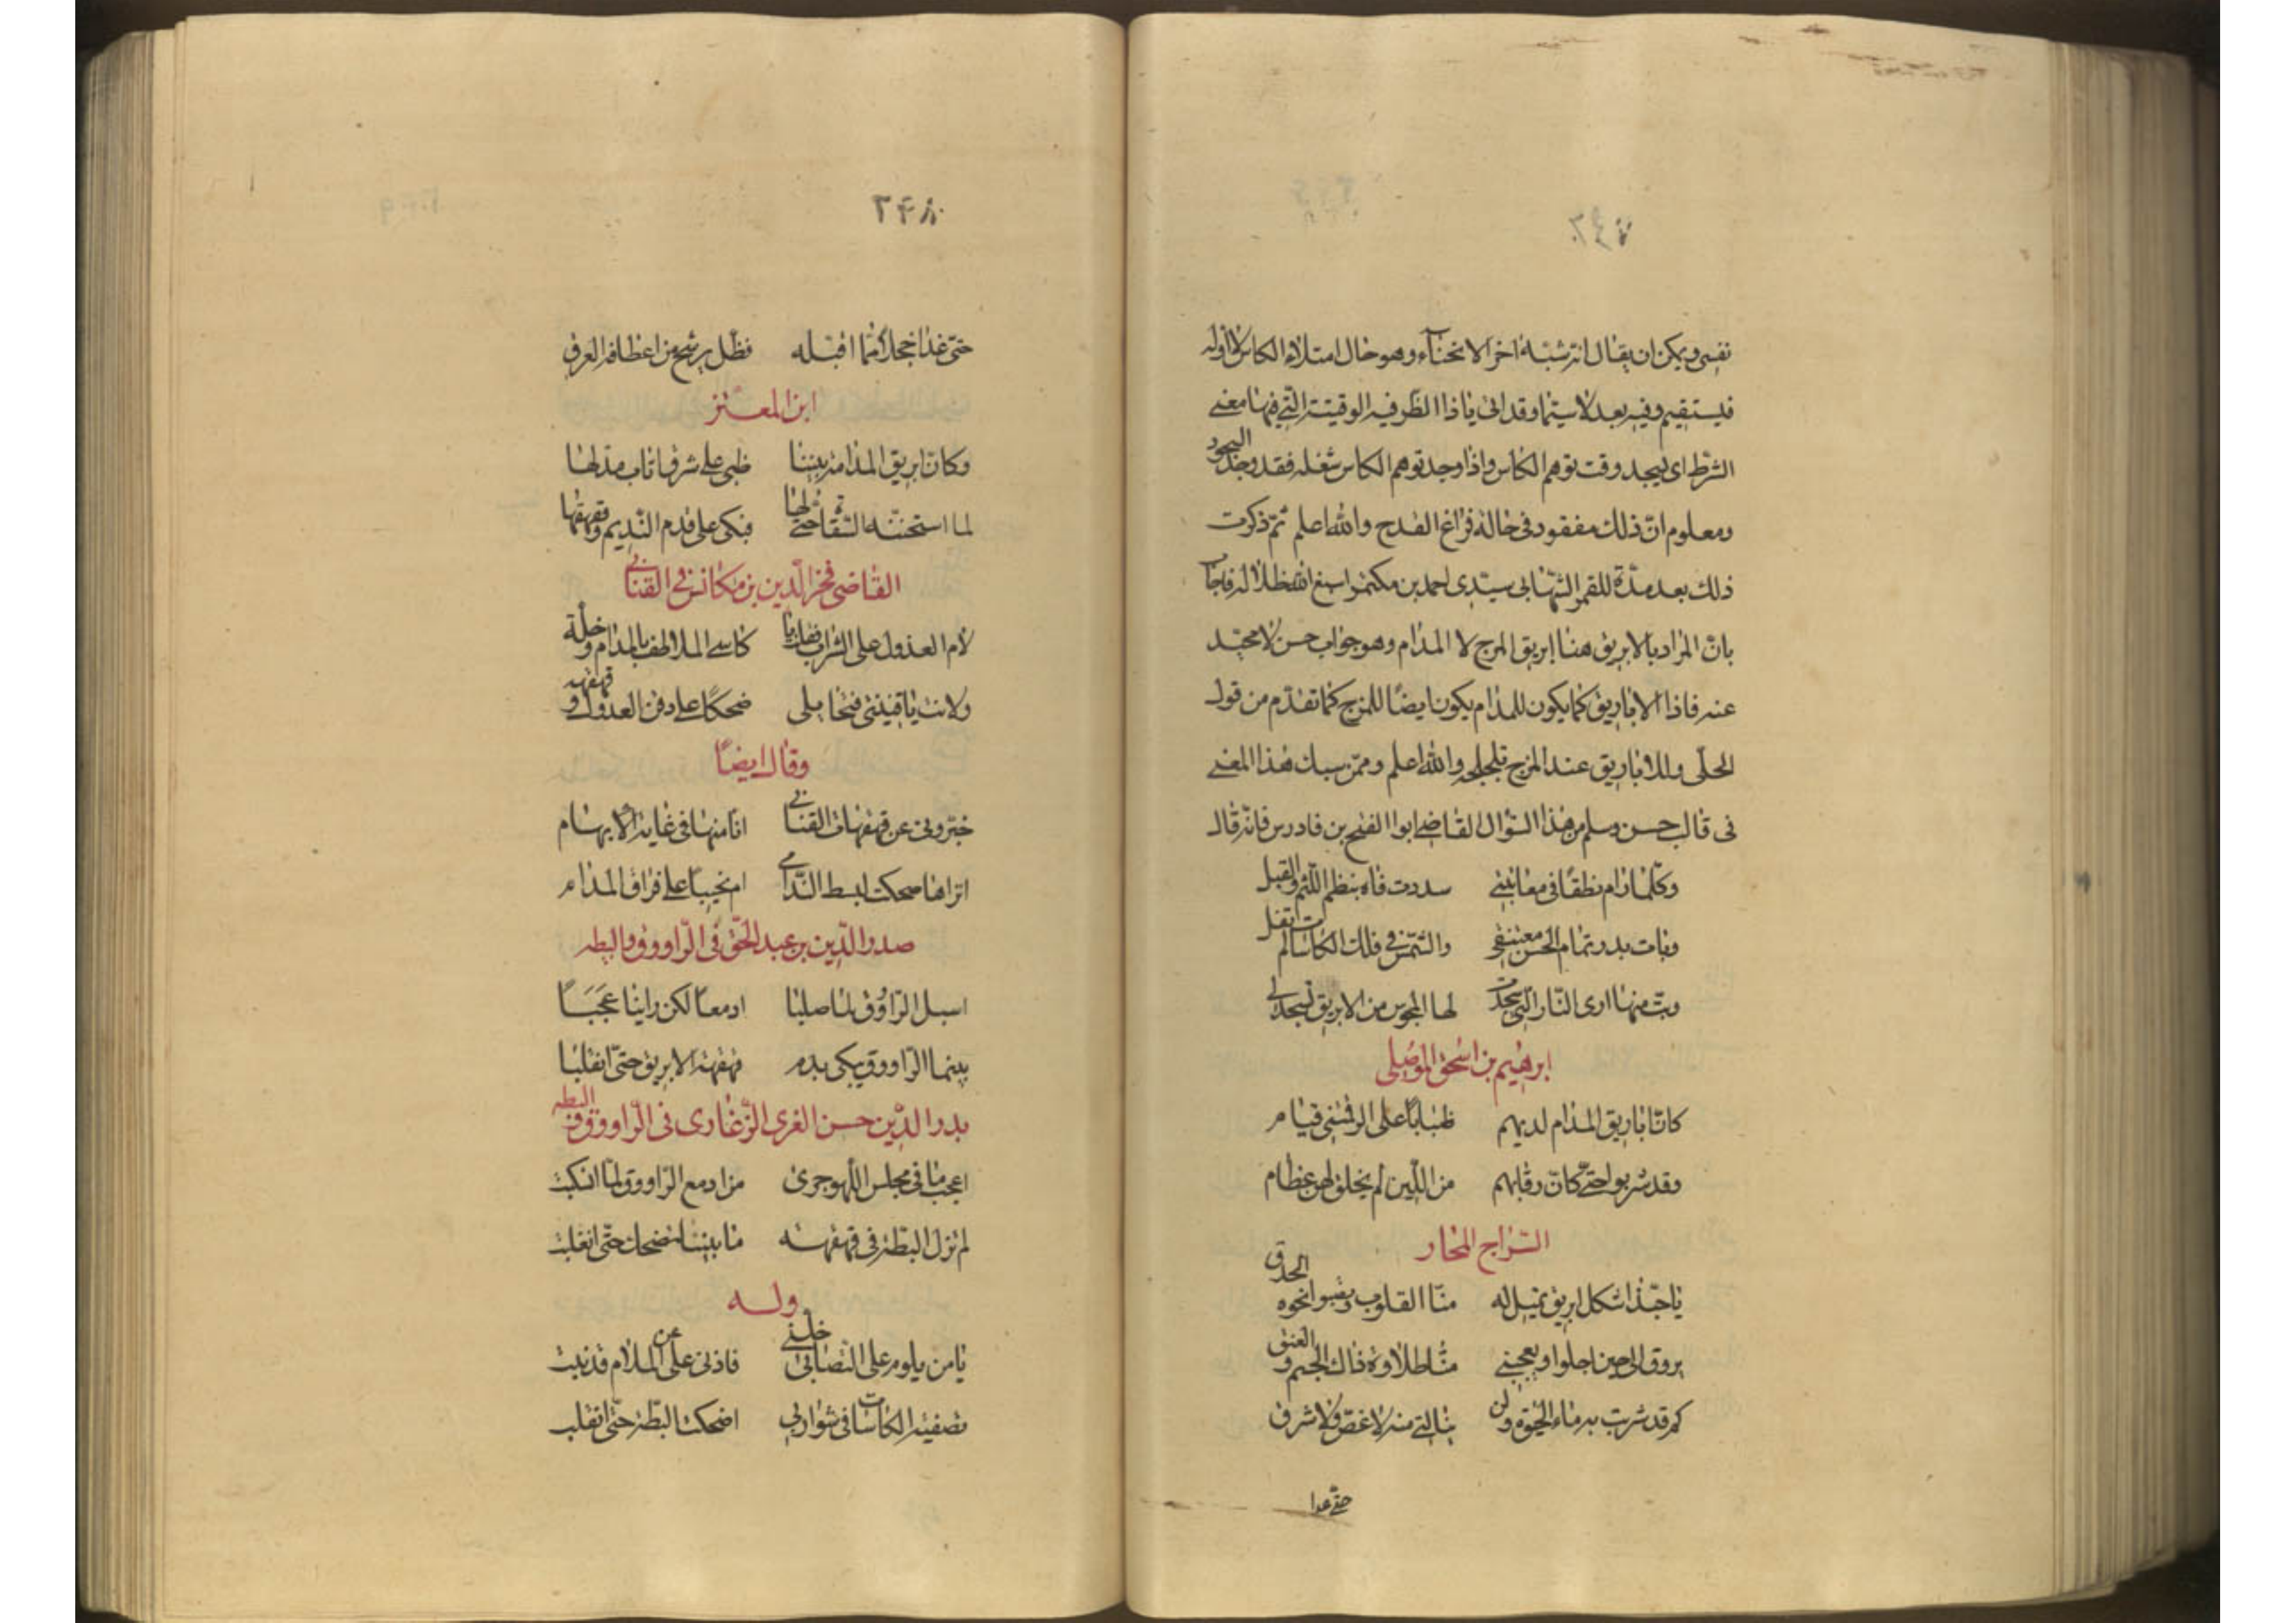 ٢٤٧
نفسى ويمكن ان يقال انه شبّه اخر الانحناء وهو حال امتلاء الكاس لا اوله
فيستقيم وفيه بعد لا سيّما وقد اتى باذا الظرفيه الوقتيته التى فيها معنى
الشرط اى يسجد وقت توهم الكاس واذا وجد توهم الكاس شغله فقد وجد السجود
ومعلوم انّ ذلك مفقود فى حالة فراغ القدح والله اعلم ثمّ ذكرت
ذلك بعد مدّة للمقر الشهابى سيّدى احمد بن مكنمو اسبغ الله ظلاله فاجاب
بانّ المراد بالابريق هنا ابريق المزج لا المدام وهو جواب حسن لا محيد
عنه فاذا الاباريق كما يكون للمدام يكون ايضًا للمزج كما تقدّم من قول
الحلّى وللاباريق عند المزج تلجلجه والله اعلم وممّن سبك هذا المعنى
فى قالب حسن وسلم من هذا السّؤال القاضى ابوا الفتح بن قادرس فانه قال
وكلّما رام نطقًا فى معاتبتى سددت فاه بنظم اللّثم والقبل
وبات بدر تمام الحسن معتنقى والشّمس فى فلك الكاسات لم تفل
وبتّ منها ارى النّار الّتى سجدت لها المجوس من الابريق تسجد لى
ابرهيم بن اسحق الموصلى
كانّ اباريق المدام لديهم ظباء با على الرقمتين قيام
وقد شربوا حتّى كانّ رقابهم من اللّين لم يخلق لهن عظام
السّراج المحار
يا حبّذا شكل ابريق تميل له منّا القلوب وتصبوا نحوه الحدق
يروق لى حين اجلوا ويعجبنى منه طلاوة ذاك الجسم والعنق
كم قد شربت به ماء الحيوة ولن ينالنى منه لا غصّ ولا شرق
حتّى غدا
٢٤٨
حتّى غدا خجلا ممّا اقبّله فظّل يرشح من اعطافه العرق
ابن المعتز
وكانّ ابريق المدامة بيننا ظبى على شرف اناب مدلها
لما استحثته السّقاة حتّى لها فبكى على قدم النّديم وقهقها
القاضى فخر الدّين بن مكانس فى القنانى
لام العذول على الشراب فقلـ يا كاسى الملا لطف بالمدام وخلّه
ولانت يا قنينتى فتحاملى ضحكًا على دقن العذول وقهقه
وقال ايضًا
خبّرونى عن قهقهات القنانى انا منها فى غاية الابهام
اتراها ضحكت لبسط النّدامى ام نحيبًا على فراق المدام
صدر الدّين بن عبد الحقّ فى الرّاووق والبطه
اسبل الرّاووق لما صلبا ادمعًا لكن راينا عَجَبَاً
بينما الرّاووق يبكى بدم قهقهة الابريق حتّى انقلبا
بدر الدّين حسن الغرى الزّغارى فى الرّاووق والبطه
اعجب ما فى مجلس اللّهو جرى من ادمع الرّاووق لمّا انسكبت
لم تزل البطّة فى قهقهة ما بيننا تضحك حتّى انقلبت
وله
يا من يلوم على التّصابى خلّنى فاذنى عن الملام قد نبت
تصفيته الكاسات فى شواربى اضحكت البطّة حتّى انقلبت